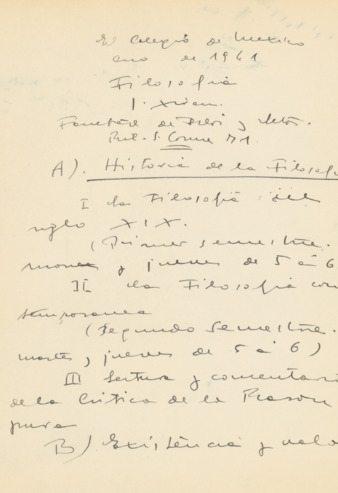 El Colegio de Mexico
de 1961
Filosofía
Facultad de Filos. y Letras.
A). Historia de la Filosofí
I la Filosofía del
siglo XIX.
(Primer semestre.
martes y jueves de 5 á 6
II la Filosofía con
temporanea
(Segundo semestre.
martes y jueves de 5 á 6)
III Lectura y comentari
de la Crítica de la Razón
pura
B) Existéncia y valo